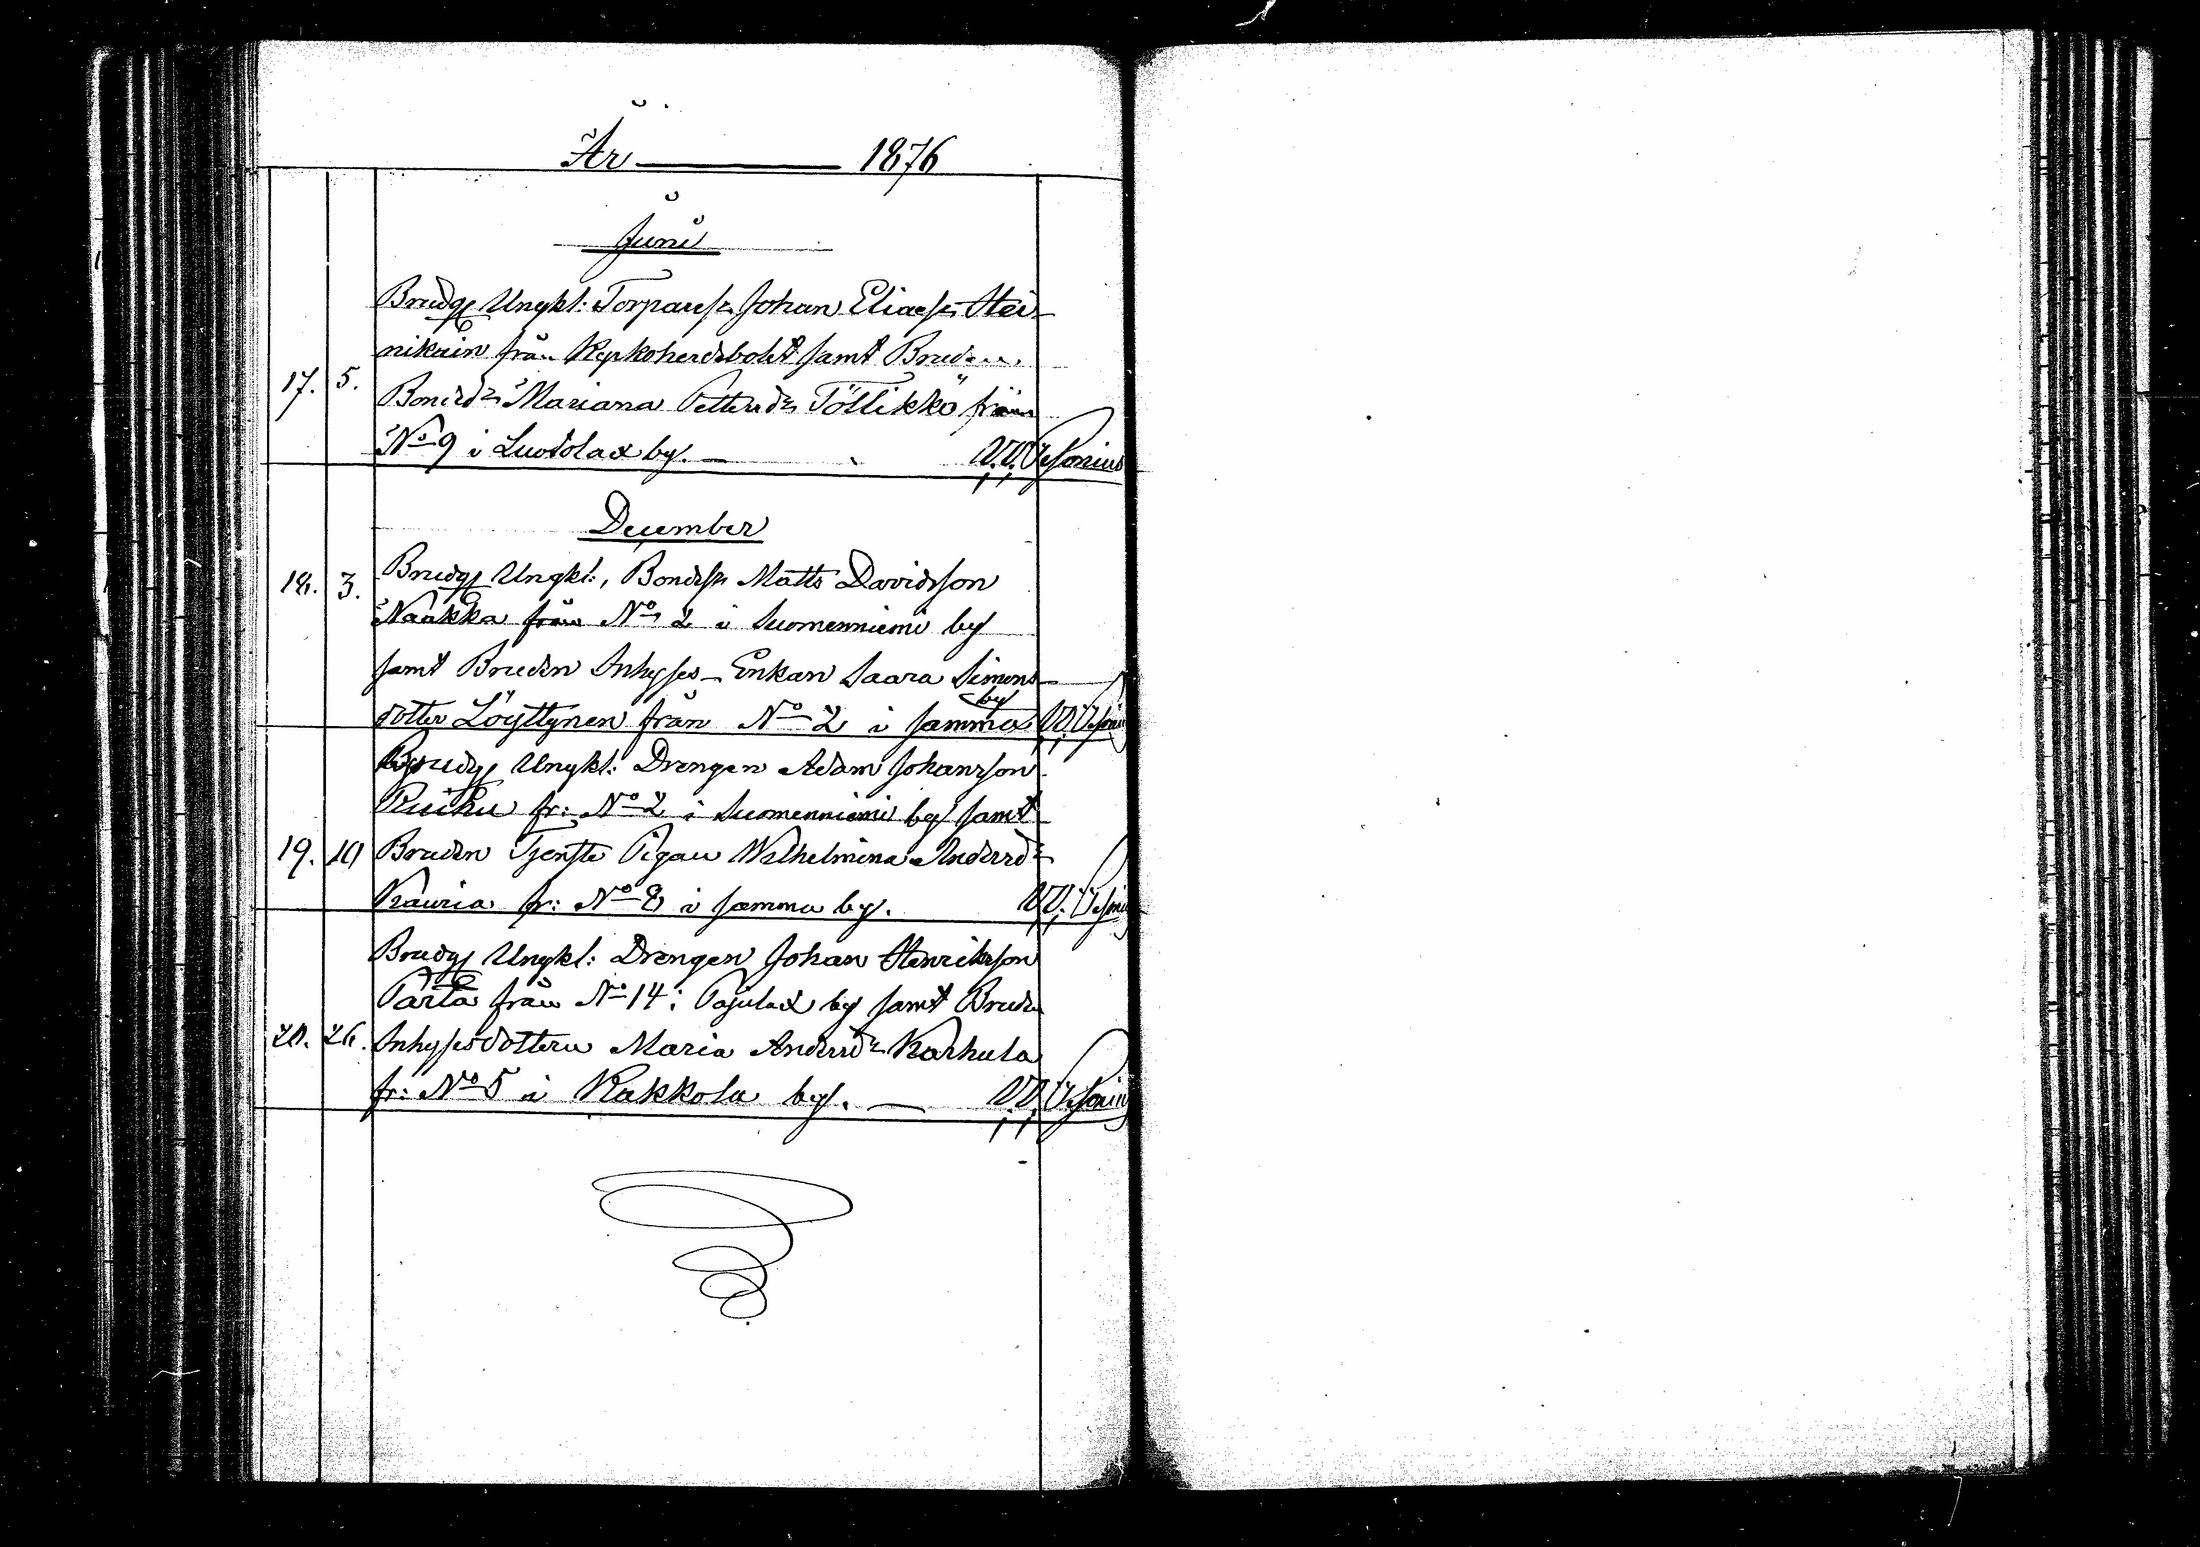 År 1876
Juni
Brudg Ungkl: Torparesn Johan Eliaesn Hei-
nikain från Kyrkoherdebolet samt Bruden
17. 5. Bonded:r Mariana Petterd:r Töttikkö från
N:o 9 i Luotolax by. V.V. Vesonius
December
18. 3. Brudg Ungkl:, Bondesn Matts Davidsson
Naakka från N:o 2 i Suomenniemi by
samt Bruden Inhyses-Enkan Saara Simons-
dotter Löyttynen från N:o 2 i samma by V.V. Vesonius
Brudg Ungkl: Drengen Adam Johansson
fr: N:o 2 i Suomenniemi by samt
19. 10 Bruden Tjenste Pigan Wilhelmina Andersd:r
Kauria fr: N:o 8 i samma by. V.V. Vesonius
Brudg Ungkl: Drengen Johan Henriksson
Pärtä från N:o 14 i Pajulax by samt Bruden
20. 26. Inhysesdottern Maria Andersd:r Karhula
fr: N:o 5 i Kakkola by. V.V. Vesonius